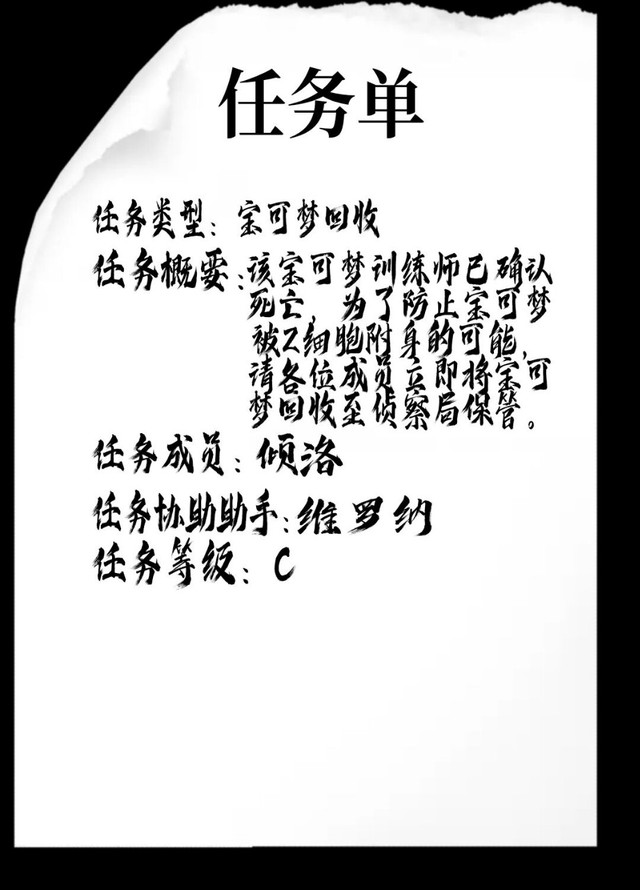 任务单
任务类型：宝可梦回收
任务概要：该宝可梦训练师已确认
死亡，为了防止宝可梦
被Z细胞附身的可能，
请各位成员立即将宝可
梦回收至侦察局保管。
任务成员：倾洛
任务协助助手：维罗纳
任务等级：C